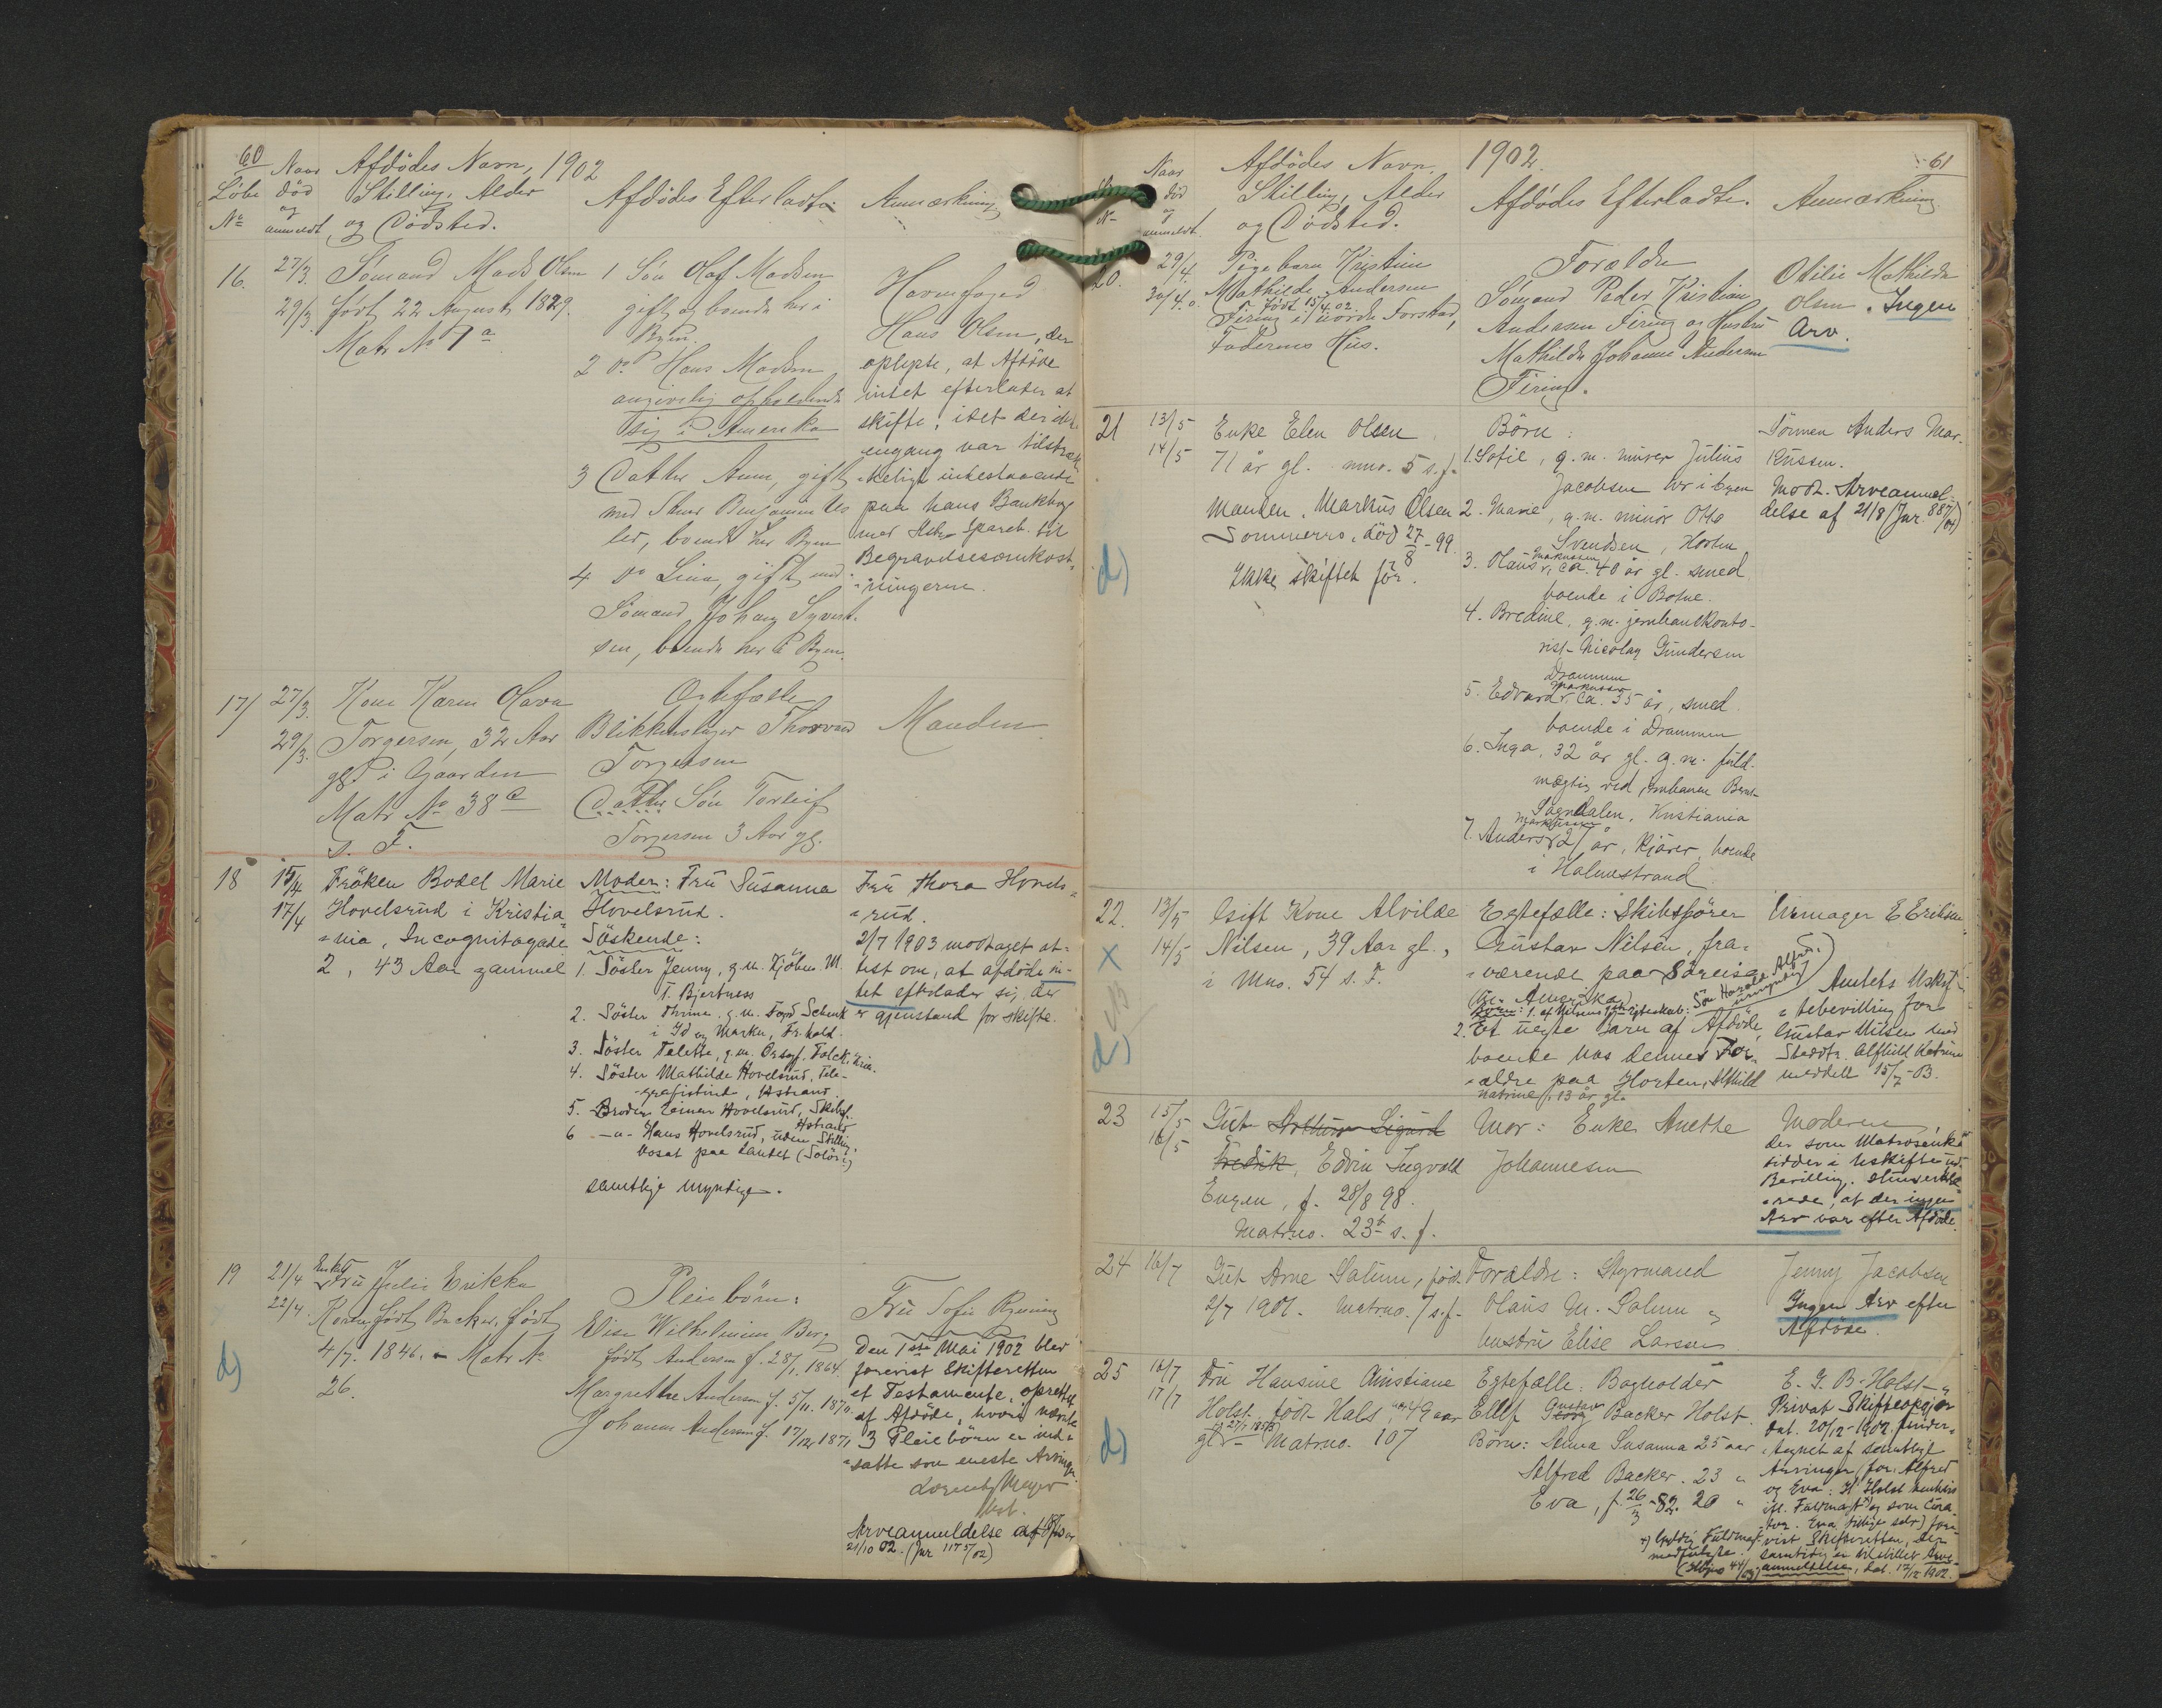 60
1902
Løbe No
Naar død og anmeldt
Afdødes Navn, Stilling, Alder og Dødsted.
Afdødes Efterladte
Anmærkning
16.
27/3.
29/3.
Sømand Mads Olsen
født 22 August 1829.
Matr No 7a
1 Søn Olaf Madsen
gift og boende her i
Byen.
2 do Hans Madsen
angivelig opholdende
sig i Amerika
3 Datter Anne, gift
med
boende her Byen
4 do Lina, gift med
Sømand Johan Syvert-
sen, boende her i Byen.
Havnefoged
Hans Olsen, der
oplyste, at Afdøde
intet efterlader at
skifte, idet der ikke
engang var tilstræk-
keligt indestaaende
paa hans Bankbog
med Hstrs Spareb. til
Begravelsesomkost-
ningerne.
17
27/3.
29/3.
Kone Karen Olava
Torgersen, 32 Aar
gl i Gaarden
Matr No 38c
s. F.
Egtefælle
Blikkenslager Thorvald
Torgersen
Datter Søn Torleif
Torgersen 3 Aar gl.
Manden
18
15/4
17/4
Frøken Bodel Marie
Hovelsrud i Kristia-
nia, Incognitogade
2, 43 Aar gammel
Moder: Fru Susanna
Hovelsrud.
Søskende:
1. Søster Jenny, g.m. Kjøbm. M.
T. Bjertness
2. Søster Thrine, g.m. Fogd Schenk
i Id og Marker, Fr.hald.
3. Søster Talette, g.m. Falck, Kria.
4. Søster Mathilde Hovelsrud, Tele-
grafistinde, Hstrand.
5. Broder Einar Hovelsrud, Skibsf.
Hstrand
6. -"- Hans Hovelsrud, uden Stilling,
bosat paa Landet (Solør)
samtlige myndige.
Fru Thora Hovels-
rud.
2/7 1903 modtaget at-
test om, at afdøde in-
tet efterlader sig, der
er gjenstand for skifte.
19
21/4
22/4.
d)
Enkefru Julie Erikka
Koren født Backer, født
4/7. 1846. Matr No
26.
Pleiebørn:
Elise Wilhelmine Berg
født Andersen f. 28/1. 1864
Margrethe Andersen f. 5/11. 1870.
Johanne Andersen f. 17/12 1871
Fru Sofie Ryning
Den 1ste Mai 1902 blev
forevist Skifteretten
et Testamente, oprettet
af Afdøde, hvori nævnte
3 Pleiebørn er ind-
satte som eneste Arvinger
Lorentz Meyer
Arveanmeldelse af
21/10 02. (Jnr 1175/02)
61
1902.
No
Naar død og anmeldt.
Afdødes Navn, Stilling, Alder og Dødsted.
Afdødes Efterladte.
Anmærkning.
20.
29/4.
30/4.
Pigebarn Kristine
Mathilde Andersen
Firing, født 15/4 02. i nordre Forstad,
Faderens Hus.
Forældre
Sømand Peder Kristian
Andersen Firing og Hustru
Mathilde Johanne Andersen
Firing.
Otilie Mathilde
Olsen. Ingen
Arv.
21
13/5
14/5
d)
Enke Elen Olsen,
71 år gl. mno. 5 s.f.
Manden, Markus Olsen
Sommerro, død 27/8-99.
Ikke skiftet før.
Børn:
1. Sofie, g.m. murer Julius
Jacobsen her i byen
2. Marie, g.m. minør Otto
Svendsen, Horten
3. Olaus Markussen, ca. 40 år gl. smed
boende i Botne.
4. Bredine, g.m. jernbanekonto-
rist Nicolay Gundersen
Drammen
5. Edvard Markussen ca. 35 år, smed
boende i Drammen
6. Inga, 32 år gl. g.m. fuld-
mægtig ved jernbanen Bernt
Sogndalen, Kristiania
7. Anders Markussen 27 år, kjører, boende
i Holmestrand
Sønnen Anders Mar-
kussen.
Modt. Arveanmel-
delse af 21/8 (Jnr. 887/02)
22.
13/5
14/5
x
d)
Gift Kone Alvilde
Nilsen, 39 Aar gl.,
i Mno. 54 s. F.
Egtefælle: Skibsfører
Gustav Nilsen, fra-
værende paa Søreise
(Amerika)
Børn: 1. af Nilsens 1ste egteskab: Søn Harald Alfr. umyndig
2. Et uegte Barn af Afdøde
boende hos dennes For-
ældre paa Horten, Alfhild
Katrine, 13 år gl.
Urmager E Eriksen
Amtets Uskif-
tebevilling for
Gustav Nilsen med
Steddtr. Alfhild Katrine
meddelt 15/7-03.
23
15/5
16/5
Gut Arthur Sigurd
Fredrik, Edvin Ingvald
Eugen, f. 28/8 98.
Matrno. 23b s.f.
Mor: Enke Anethe
Johannesen
Moderen,
der som Matrosenke
sidder i Uskifte ud.
Bevilling,
at der ingen
Arv var efter Afdøde.
24
16/7
Gut Arne Salum, født
2/7 1901. Matrno. 7 s.f.
Forældre: Styrmand
Olaus M. Salum og
hustru Elise Larsen
Jenny Jacobsen
Ingen Arv efter
Afdøde.
25
16/7
17/7
d)
Fru Hansine Christiane
Holst, født Hals, 49 aar
gl. Matrno. 107
Egtefælle: Bogholder
Ellef Gustav Backer Holst.
Børn: Anna Susanna 25 aar
Alfred Backer. 23 "
Eva, f. 26/3-82. 20 "
E. G. B. Holst
Privat Skifteopgjør
dat. 20/12-1902, under-
tegnet af samtlige
Arvinger (for Alfred
og Eva: H Holst
ifl. Fuldmagt x) og som Cura-
tor. Eva tillige selv) fore-
vist Skifteretten, der
samtidig er tilstillet Arve-
anmeldelse, dat. 17/12 1902.
x) Gyldig Fuldmagt
medfulgte.